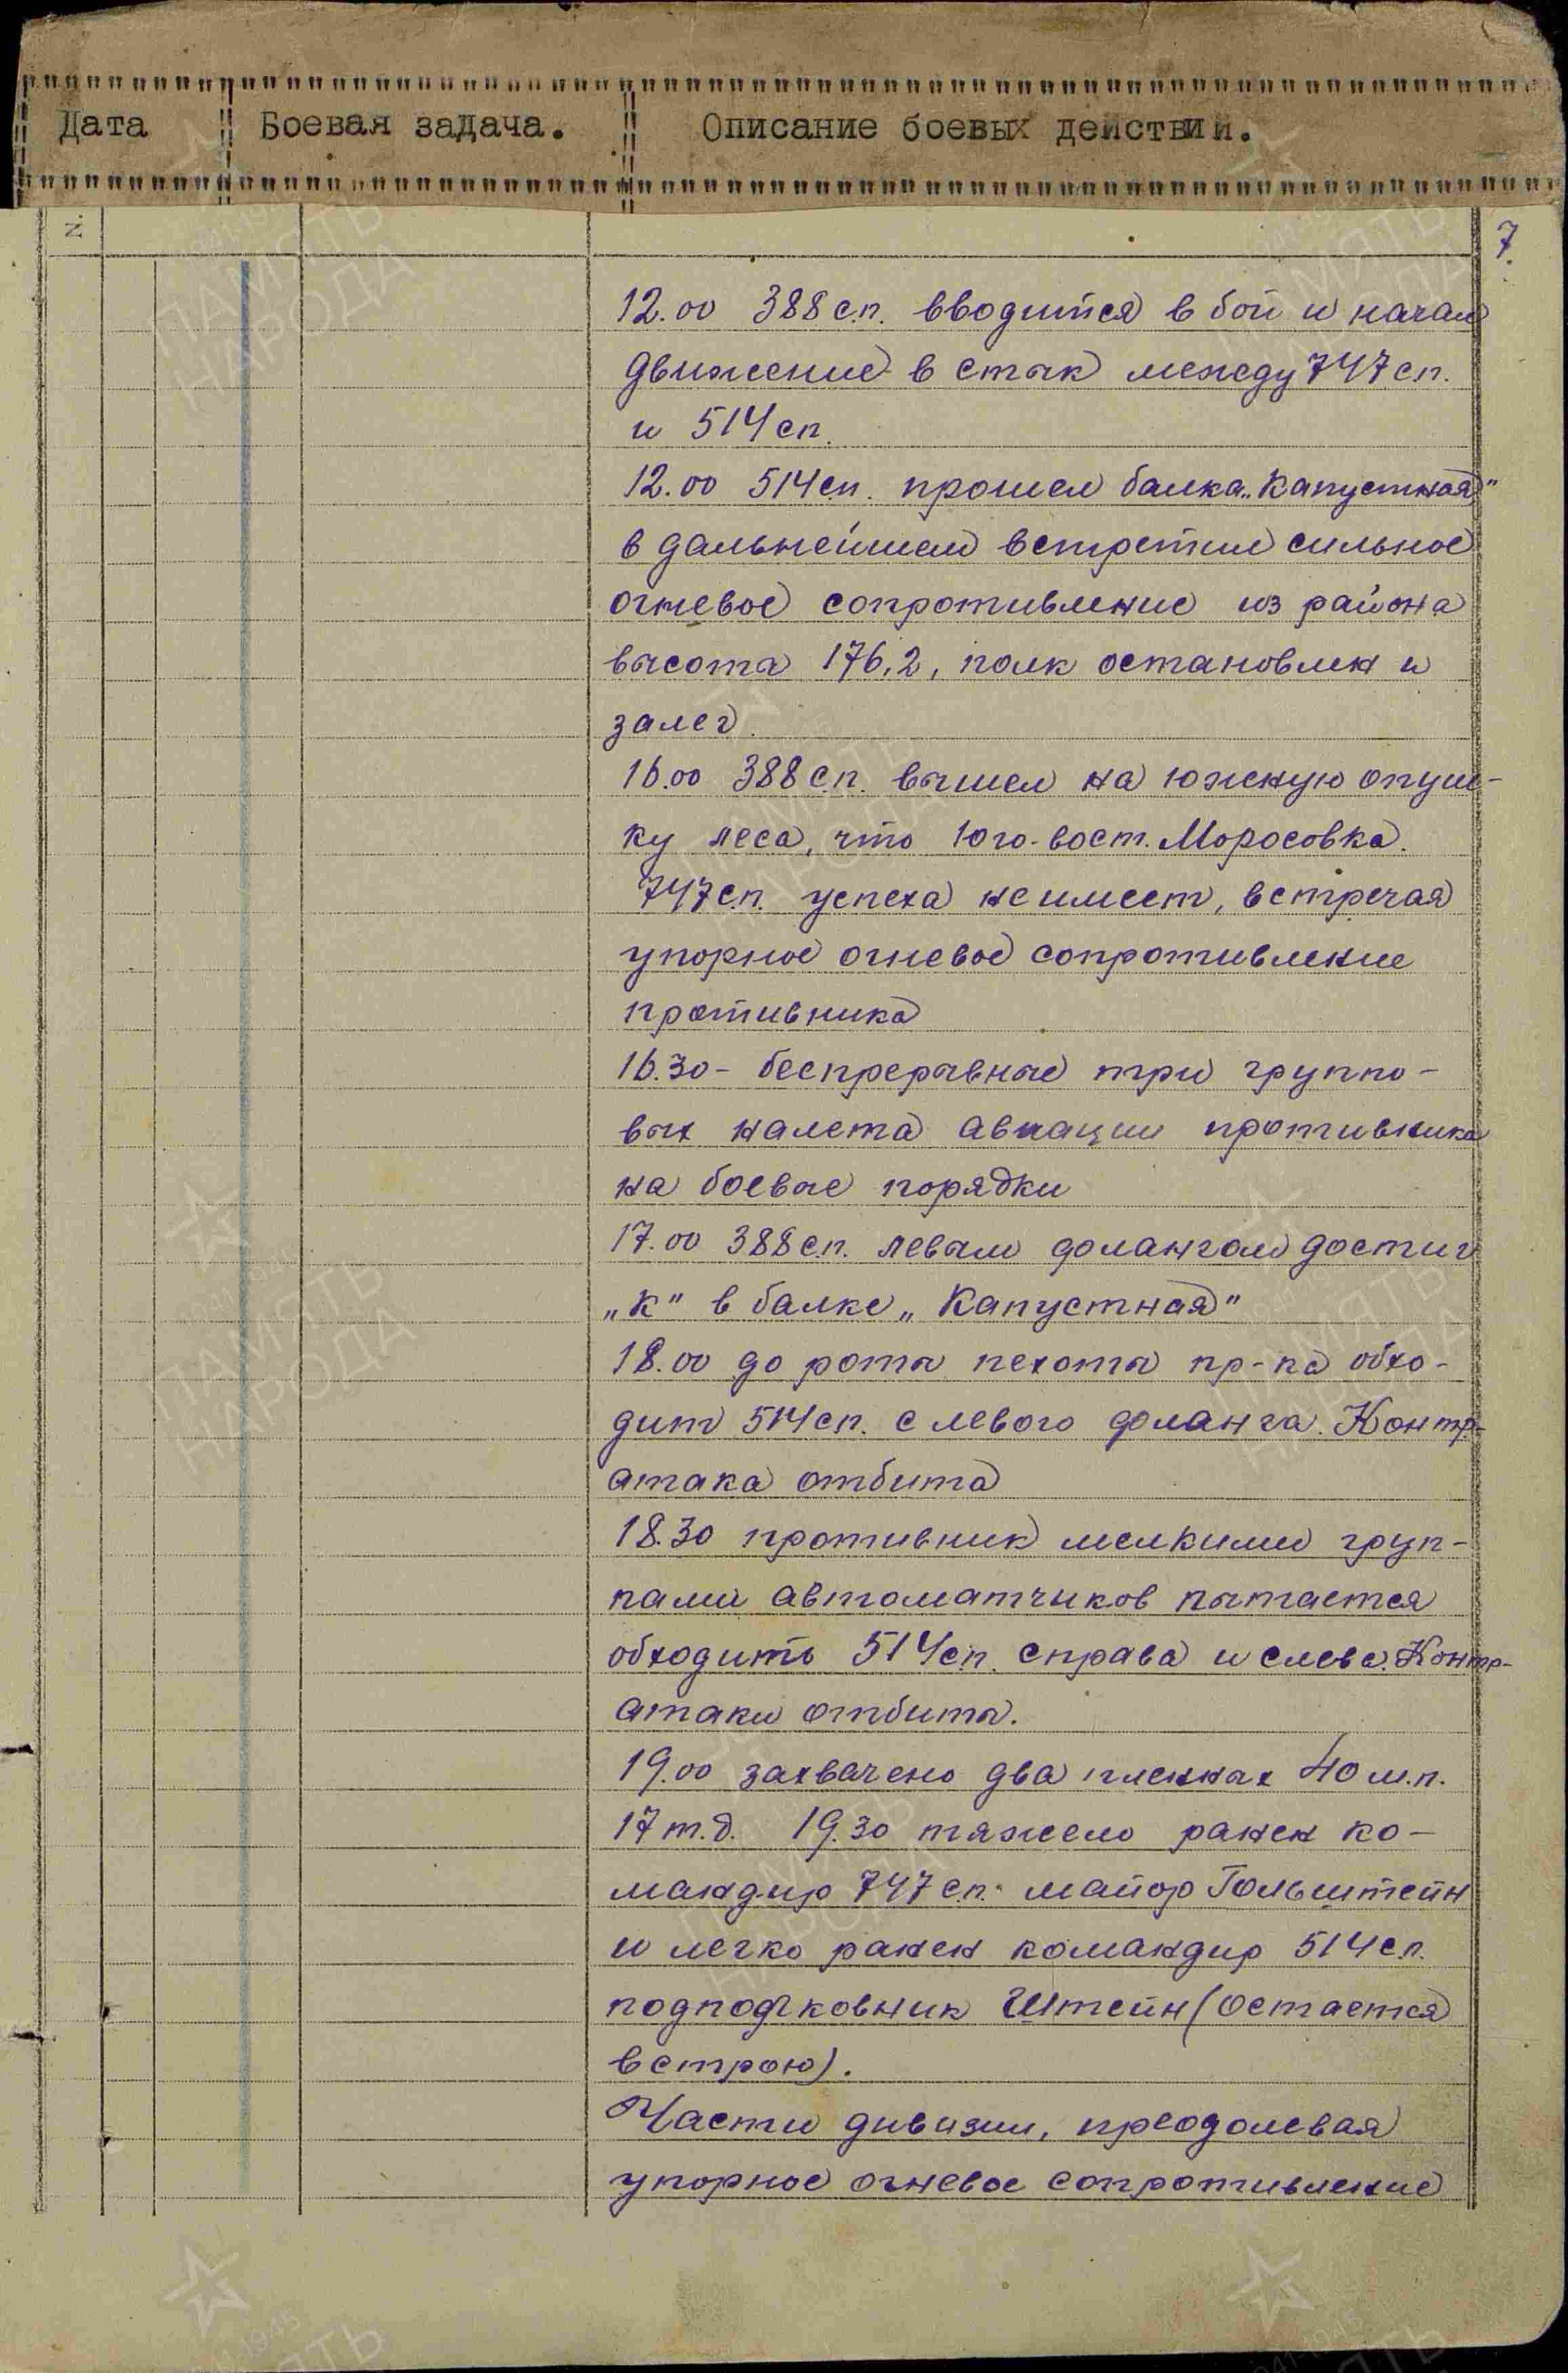 Дата Боевая задача. Описание боевых действий.
N.
7.
12.00 388 с.п. вводится в бой и начал
движение в стык между 747 сп.
и 514 сп.
12.00 514 с.п. прошел балка „Капустная"
в дальнейшем встретил сильное
огневое сопротивление из района
высота 176,2, полк остановлен и
залег.
16.00 388 с.п. вышел на южную опуш-
ку леса, что юго-вост. Моросовка.
747 с.п. успеха не имеет, встречая
упорное огневое сопротивление
противника
16.30 - беспрерывные три группо-
вых налета авиации противника
на боевые порядки
17.00 388 с.п. левым флангом достиг
„К" в балке „Капустная"
18.00 до роты пехоты пр-ка обхо-
дит 514 сп. с левого фланга. Контр-
атака отбита
18.30 противник мелкими груп-
пами автоматчиков пытается
обходить 514 с.п. справа и слева. Контр-
атаки отбиты.
19.00 захвачено два пленных 40 м.п.
17 т.д. 19.30 тяжело ранен ко-
мандир 747 с.п. майор Гольштейн
и легко ранен командир 514 с.п.
подполковник Штейн (остается
в строю).
Части дивизии, преодолевая
упорное огневое сопротивление
ПАМЯТЬ
НАРОДА